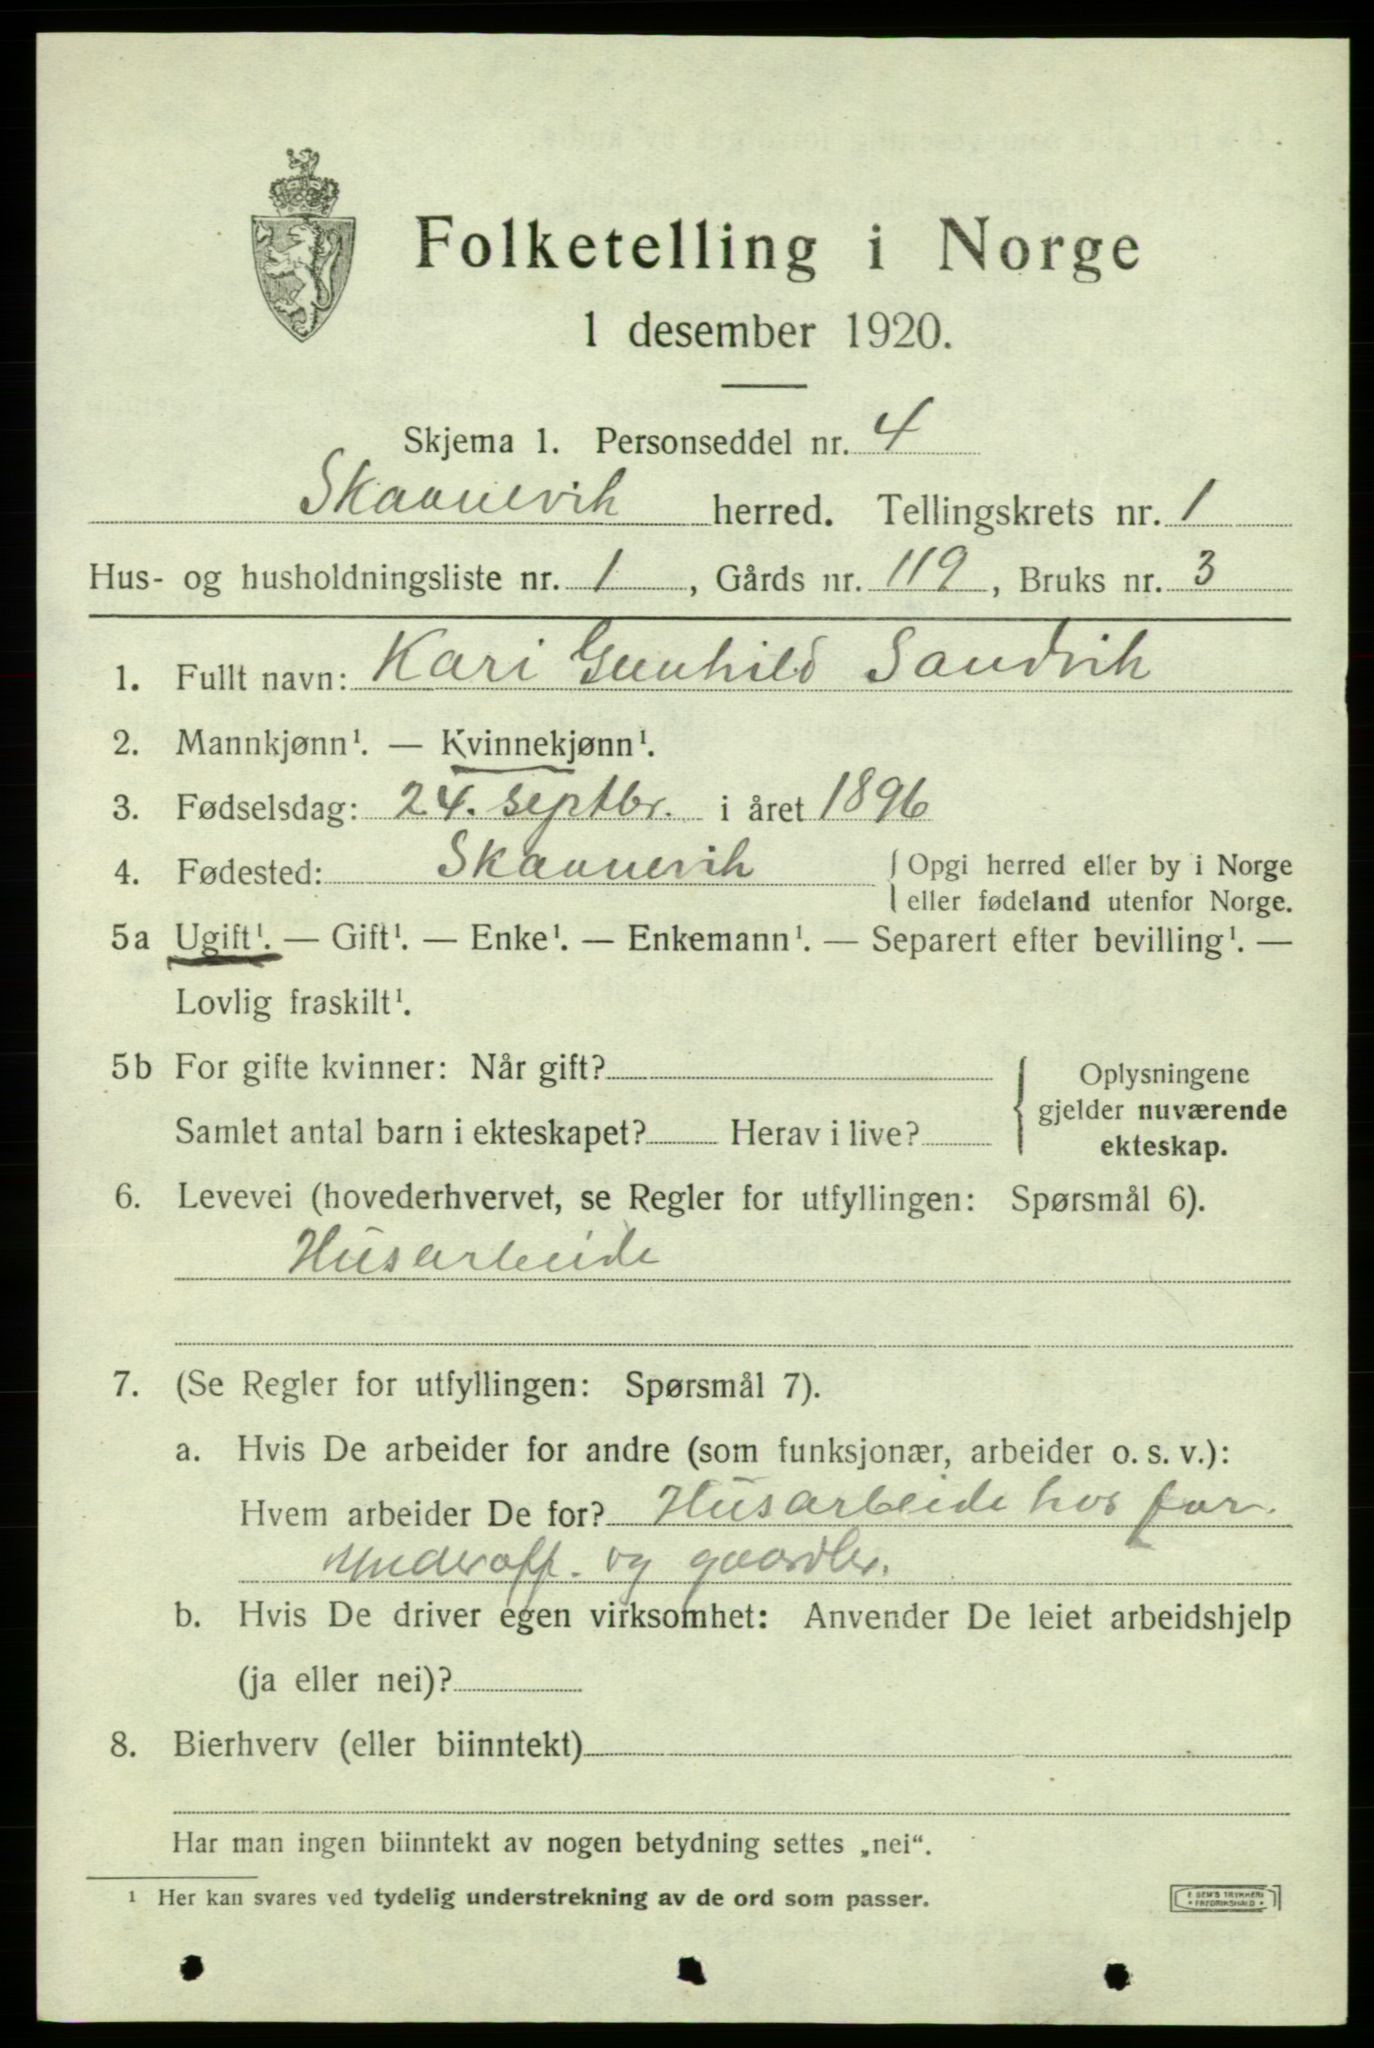 Folketelling i Norge
1 desember 1920.
Skjema 1. Personseddel nr. 4
Skaanevik herred. Tellingskrets nr. 1
Hus- og husholdningsliste nr. 1, Gårds nr. 119, Bruks nr. 3
1. Fullt navn: Kari Gunhild Sandvik
2. Mannkjønn¹. — Kvinnekjønn¹.
3. Fødselsdag: 24. septbr. i året 1896
4. Fødested: Skaanevik { Opgi herred eller by i Norge
eller fødeland utenfor Norge.
5a Ugift¹. — Gift¹. — Enke¹. — Enkemann¹. — Separert efter bevilling¹. —
Lovlig fraskilt¹.
5b For gifte kvinner: Når gift?
Samlet antal barn i ekteskapet? Herav i live?
{ Oplysningene
gjelder nuværende
ekteskap.
6. Levevei (hovederhvervet, se Regler for utfyllingen: Spørsmål 6).
Husarbeide
7. (Se Regler for utfyllingen: Spørsmål 7).
a. Hvis De arbeider for andre (som funksjonær, arbeider o. s. v.):
Hvem arbeider De for? Husarbeide hos far.
Underoff. og gaardbr.
b. Hvis De driver egen virksomhet: Anvender De leiet arbeidshjelp
(ja eller nei)?
8. Bierhverv (eller biinntekt)
Har man ingen biinntekt av nogen betydning settes „nei“.
¹ Her kan svares ved tydelig understrekning av de ord som passer.
E SEM'S TRYKKERI
• FREDRIKSHALD •